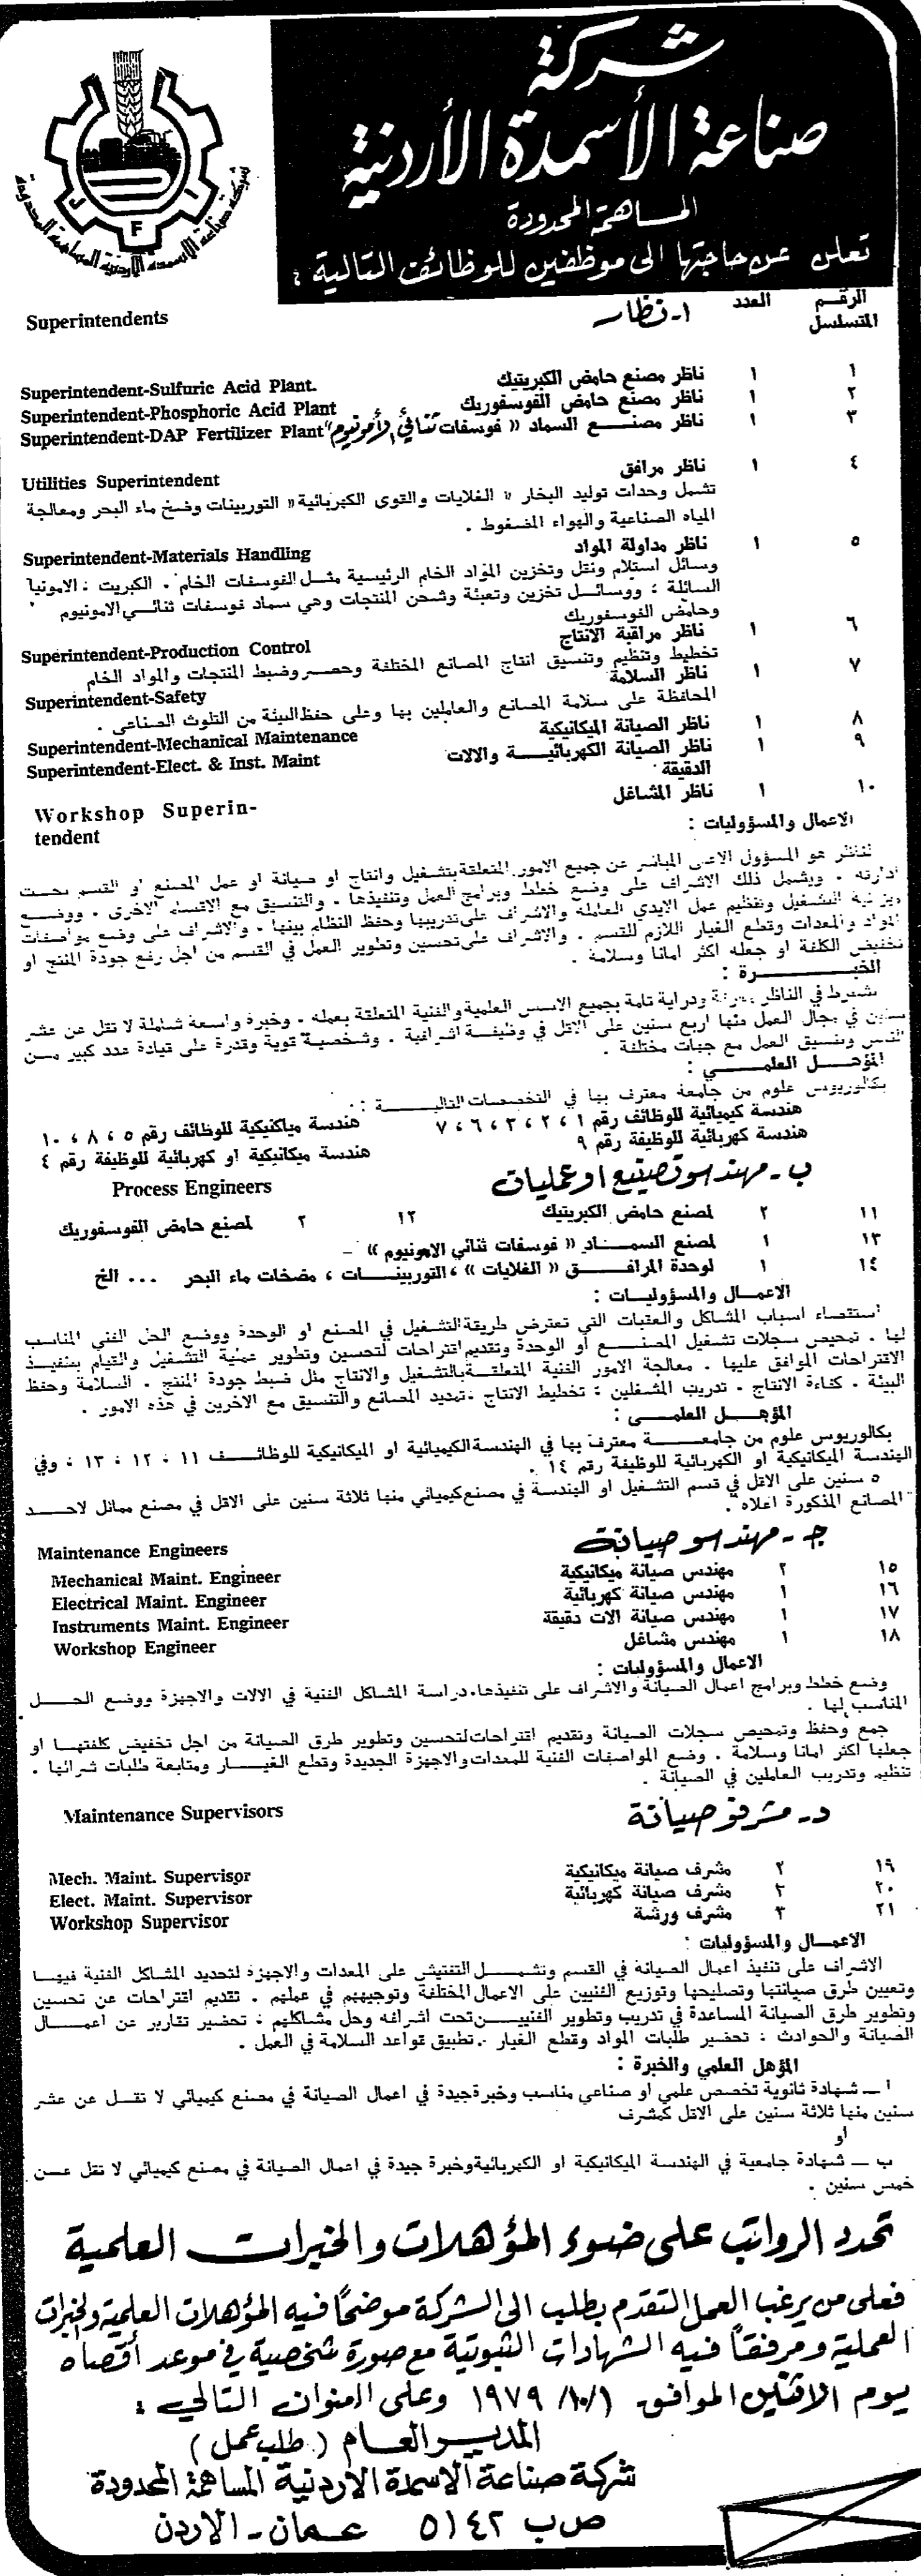 شركة
صناعة الأسمدة الأردنية
المساهمة المحدودة
تعلن عن حاجتها الى موظفين للوظائف التالية :
شركة صناعة الاسمدة الاردنية المساهمة المحدودة
J F I
الرقم المتسلسل العدد ١- نظار Superintendents
١ ١ ناظر مصنع حامض الكبريتيك Superintendent-Sulfuric Acid Plant.
٢ ١ ناظر مصنع حامض الفوسفوريك Superintendent-Phosphoric Acid Plant
٣ ١ ناظر مصنع السماد « فوسفات ثنائي الأمونيوم » Superintendent-DAP Fertilizer Plant
٤ ١ ناظر مرافق Utilities Superintendent
تشمل وحدات توليد البخار « الغلايات والقوى الكهربائية » التوربينات وضخ ماء البحر ومعالجة
المياه الصناعية والهواء المضغوط .
٥ ١ ناظر مداولة المواد Superintendent-Materials Handling
وسائل استلام ونقل وتخزين المواد الخام الرئيسية مثل الفوسفات الخام ، الكبريت ، الامونيا
السائلة ، ووسائل تخزين وتعبئة وشحن المنتجات وهي سماد فوسفات ثنائي الامونيوم
وحامض الفوسفوريك
٦ ١ ناظر مراقبة الانتاج Superintendent-Production Control
تخطيط وتنظيم وتنسيق انتاج المصانع المختلفة وحصر وضبط المنتجات والمواد الخام
٧ ١ ناظر السلامة Superintendent-Safety
المحافظة على سلامة المصانع والعاملين بها وعلى حفظ البيئة من التلوث الصناعي .
٨ ١ ناظر الصيانة الميكانيكية Superintendent-Mechanical Maintenance
٩ ١ ناظر الصيانة الكهربائية والالات الدقيقة Superintendent-Elect. & Inst. Maint
١٠ ١ ناظر المشاغل Workshop Superin-
tendent
الاعمال والمسؤوليات :
الناظر هو المسؤول الاعلى المباشر عن جميع الامور المتعلقة بتشغيل وانتاج او صيانة او عمل المصنع او القسم تحت
ادارته . ويشمل ذلك الاشراف على وضع خطط وبرامج العمل وتنفيذها . والتنسيق مع الاقسام الاخرى . ووضع
التشغيل وتنظيم عمل الايدي العاملة والاشراف على تدريبها وحفظ النظام بينها . والاشراف على وضع مواصفات
المواد والمعدات وقطع الغيار اللازم للقسم . والاشراف على تحسين وتطوير العمل في القسم من اجل رفع جودة المنتج او
تخفيض الكلفة او جعله اكثر امانا وسلامة .
الخبرة :
يشترط في الناظر معرفة ودراية تامة بجميع الاسس العلمية والفنية المتعلقة بعمله . وخبرة واسعة شاملة لا تقل عن عشر
سنين في مجال العمل منها اربع سنين على الاقل في وظيفة اشرافية . وشخصية قوية وقدرة على قيادة عدد كبير من
وتنسيق العمل مع جهات مختلفة .
المؤهل العلمي :
بكالوريوس علوم من جامعة معترف بها في التخصصات التالية :
هندسة كيميائية للوظائف رقم ١ ، ٢ ، ٣ ، ٦ ، ٧ هندسة ميكانيكية للوظائف رقم ٥ ، ٨ ، ١٠
هندسة كهربائية للوظيفة رقم ٩ هندسة ميكانيكية او كهربائية للوظيفة رقم ٤
ب - مهندسو تصنيع او عمليات Process Engineers
١١ ٢ لمصنع حامض الكبريتيك ١٢ ٢ لمصنع حامض الفوسفوريك
١٣ ١ لمصنع السماد « فوسفات ثنائي الامونيوم » -
١٤ ١ لوحدة المرافق « الغلايات » ، التوربينات ، مضخات ماء البحر ... الخ
الاعمال والمسؤوليات :
استقصاء اسباب المشاكل والعقبات التي تعترض طريقة التشغيل في المصنع او الوحدة ووضع الحل الفني المناسب
لها . تمحيص سجلات تشغيل المصنع او الوحدة وتقديم اقتراحات لتحسين وتطوير عملية التشغيل والقيام بتنفيذ
الاقتراحات الموافق عليها . معالجة الامور الفنية المتعلقة بالتشغيل والانتاج مثل ضبط جودة المنتج . السلامة وحفظ
البيئة . كفاءة الانتاج . تدريب المشغلين : تخطيط الانتاج ، تمديد المصانع والتنسيق مع الآخرين في هذه الامور .
المؤهل العلمي :
بكالوريوس علوم من جامعة معترف بها في الهندسة الكيميائية او الميكانيكية للوظائف ١١ ، ١٢ ، ١٣ ، وفي
الهندسة الميكانيكية او الكهربائية للوظيفة رقم ١٤ .
٥ سنين على الاقل في قسم التشغيل او الهندسة في مصنع كيميائي منها ثلاثة سنين على الاقل في مصنع مماثل لاحد
المصانع المذكورة اعلاه .
ج - مهندسو صيانة Maintenance Engineers
١٥ ٢ مهندس صيانة ميكانيكية Mechanical Maint. Engineer
١٦ ١ مهندس صيانة كهربائية Electrical Maint. Engineer
١٧ ١ مهندس صيانة الات دقيقة Instruments Maint. Engineer
١٨ ١ مهندس مشاغل Workshop Engineer
الاعمال والمسؤوليات :
وضع خطط وبرامج اعمال الصيانة والاشراف على تنفيذها . دراسة المشاكل الفنية في الالات والاجهزة ووضع الحل
المناسب لها .
جمع وحفظ وتمحيص سجلات الصيانة وتقديم اقتراحات لتحسين وتطوير طرق الصيانة من اجل تخفيض كلفتها او
جعلها اكثر امانا وسلامة . وضع المواصفات الفنية للمعدات والاجهزة الجديدة وقطع الغيار ومتابعة طلبات شرائها .
تنظيم وتدريب العاملين في الصيانة .
د - مشرفو صيانة Maintenance Supervisors
١٩ ٢ مشرف صيانة ميكانيكية Mech. Maint. Supervisor
٢٠ ٢ مشرف صيانة كهربائية Elect. Maint. Supervisor
٢١ ٣ مشرف ورشة Workshop Supervisor
الاعمال والمسؤوليات :
الاشراف على تنفيذ اعمال الصيانة في القسم وتشمل التفتيش على المعدات والاجهزة لتحديد المشاكل الفنية فيها
وتعيين طرق صيانتها وتصليحها وتوزيع الفنيين على الاعمال المختلفة وتوجيههم في عملهم . تقديم اقتراحات عن تحسين
وتطوير طرق الصيانة المساعدة في تدريب وتطوير الفنيين تحت اشرافه وحل مشاكلهم ، تحضير تقارير عن اعمال
الصيانة والحوادث ، تحضير طلبات المواد وقطع الغيار . تطبيق قواعد السلامة في العمل .
المؤهل العلمي والخبرة :
أ ــ شهادة ثانوية تخصص علمي او صناعي مناسب وخبرة جيدة في اعمال الصيانة في مصنع كيميائي لا تقل عن عشر
سنين منها ثلاثة سنين على الاقل كمشرف
او
ب ــ شهادة جامعية في الهندسة الميكانيكية او الكهربائية وخبرة جيدة في اعمال الصيانة في مصنع كيميائي لا تقل عن
خمس سنين .
تحدد الرواتب على ضوء المؤهلات والخبرات العلمية
فعلى من يرغب العمل التقدم بطلب الى الشركة موضحاً فيه المؤهلات العلمية والخبرات
العملية ومرفقاً فيه الشهادات الثبوتية مع صورة شخصية في موعد أقصاه
يوم الاثنين الموافق ١/١٠/١٩٧٩ وعلى العنوان التالي :
المدير العام ( طلب عمل )
شركة صناعة الاسمدة الاردنية المساهمة المحدودة
ص ب ٥١٤٢ عمان - الاردن